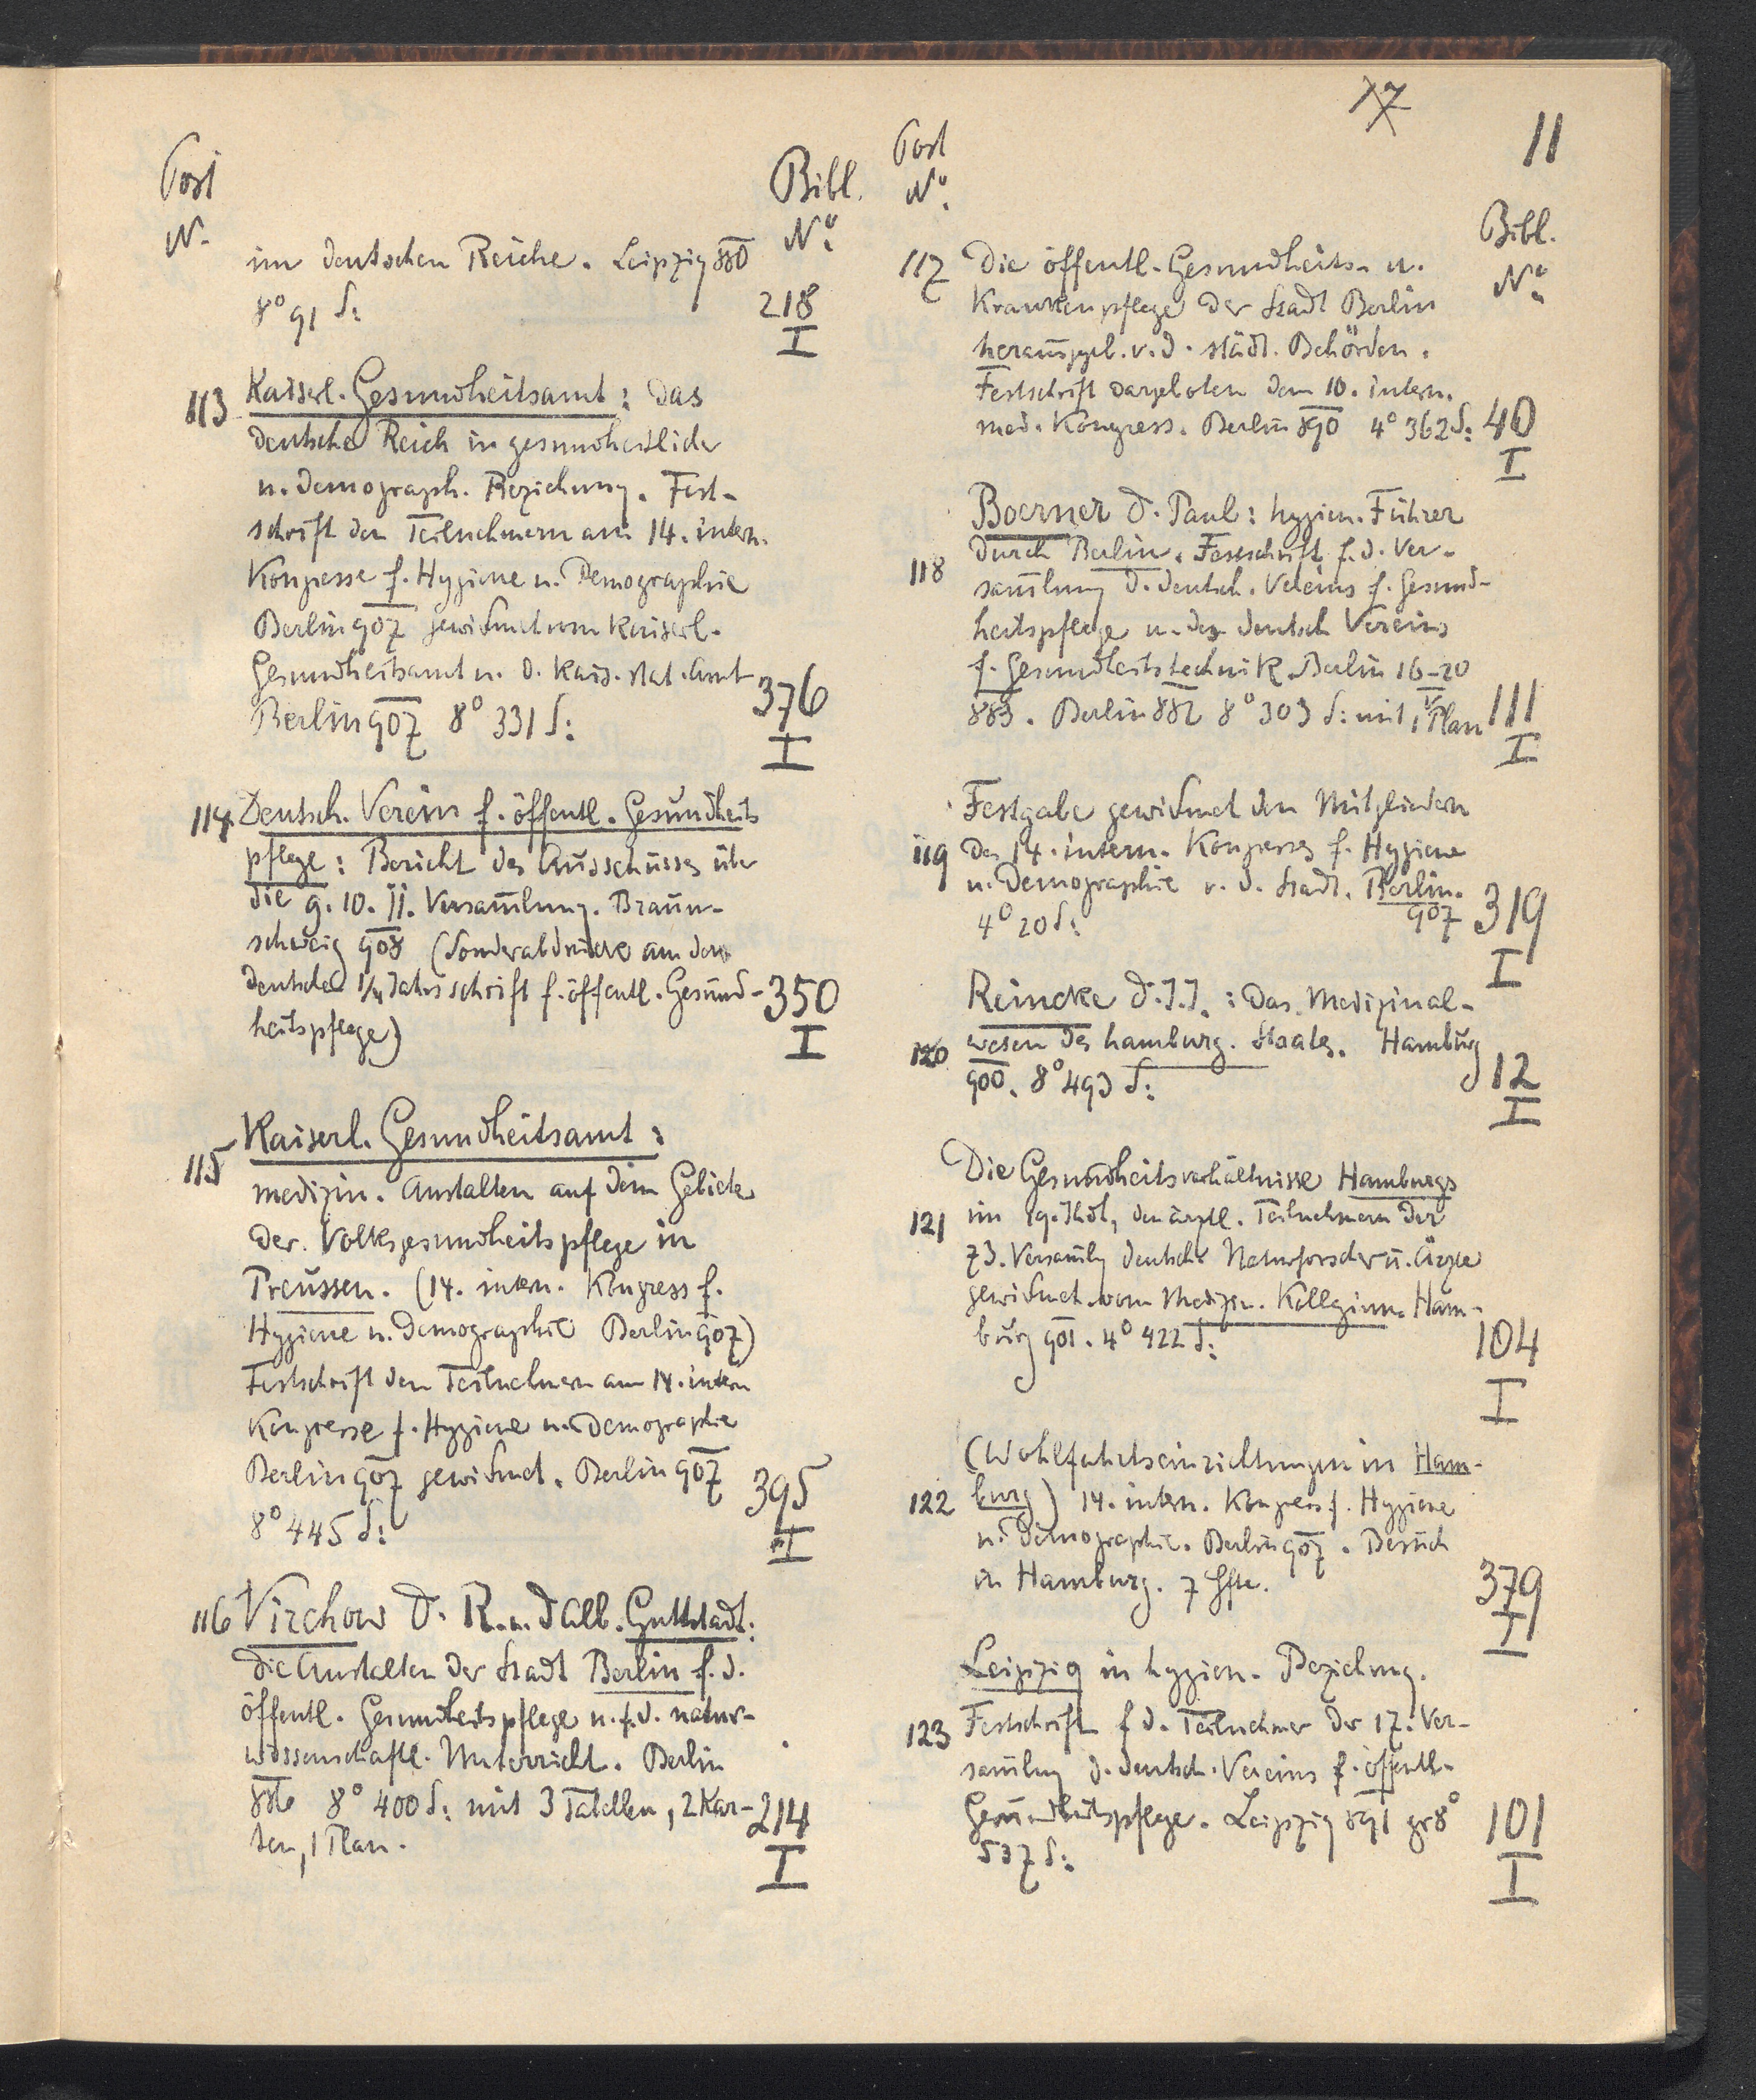 17
11
Post
N.
Bibl.
No.
im deutschen Reiche. Leipzig 880
8° 91 S:
218
I
113
Kaiserl. Gesundheitsamt: das
deutsche Reich in gesundheitlicher
u. demograph. Beziehung. Fest-
schrift den Teilnehmern am 14. intern.
Kongresse f. Hygiene u. Demographie
Berlin 907 gewidmet vom Kaiserl.
Gesundheitsamt u. d. Kais. stat. Amt
Berlin 907 8° 331 S:
376
I
114.
Deutsch. Verein f. öffentl. Gesundheits
pflege: Bericht des Ausschusses über
die 9. 10. 11. Versammlung. Braun-
schweig 908 (Sonderabdrücke aus der
deutschen 1/4 Jahrsschrift f. öffentl. Gesund-
heitspflege)
350
I
115
Kaiserl. Gesundheitsamt:
medizin. Anstalten auf dem Gebiete
der Volksgesundheitspflege in
Preussen. (14. intern. Kongress f.
Hygiene u. Demographie Berlin 907)
Festschrift den Teilnehmern am 14. intern
Kongresse f. Hygiene u. Demographie
Berlin 907 gewidmet. Berlin 907
8° 445 S:
395
I
116
Virchow D. R. u. D Alb. Guttstadt:
die Anstalten der Stadt Berlin f. d.
öffentl. Gesundheitspflege u. f. d. natur-
wissenschaftl. Unterricht. Berlin
886 8° 400 S: mit 3 Tabellen, 2 Kar-
ten, 1 Plan.
214
I
Post
No.
Bibl.
No.
117
Die öffentl. Gesundheits- u.
Krankenpflege der Stadt Berlin
herausggb. v. d. städt. Behörden.
Festschrift dargeboten dem 10. intern.
med. Kongress. Berlin 890 4° 362 S:
40
I
118
Boerner D. Paul: hygien. Führer
durch Berlin. Festschrift f. d. Ver-
sammlung d. deutsch. Vereins f. Gesund-
heitspflege u. des deutsch Vereins
f. Gesundheitstechnik Berlin 16-20
V
883. Berlin 882 8° 303 S: mit 1 Plan
111
I
119
Festgabe gewidmet den Mitgliedern
des 14. intern. Kongresses f. Hygiene
u. Demographie v. d. Stadt. Berlin.
907
4° 20 S:
319
I
120
Reincke D. J. J.: Das Medizinal-
wesen des hamburg. Staates. Hamburg
900. 8° 493 S:
12
I
121
Die Gesundheitsverhältnisse Hamburgs
im 19. Jhdt, den ärztl. Teilnehmern der
73. Versamlg deutscher Naturforscher u. Ärzte
gewidmet vom Medizin. Kollegium. Ham-
burg 901. 4° 422 S:
104
I
122
(Wohlfahrtseinrichtungen in Ham-
burg) 14. intern. Kongress f. Hygiene
u. Demographie. Berlin 907. Besuch
in Hamburg. 7 Hfte.
379
I
123
Leipzig in hygien. Beziehung.
Festschrift f d. Teilnehmer der 17. Ver-
samlung d. deutsch. Vereins f. öffentl.
Gesundheitspflege. Leipzig 891 gr 8°
537 S:
101
I